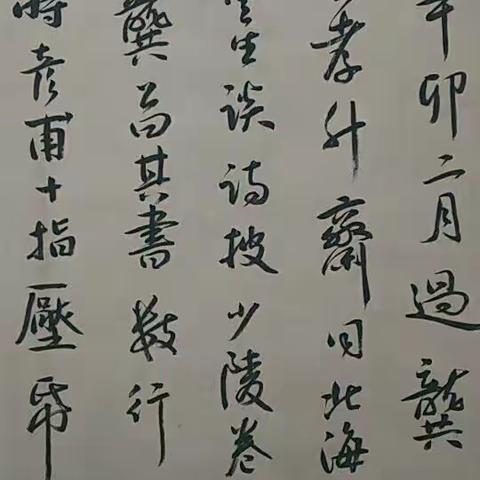 辛卯二月過龔
孝升齋同北海
先生談詩披少陵卷
龔召其書數行
時彥甫十指壓帋